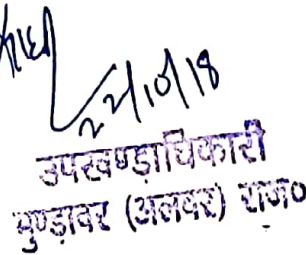 22/10/18
उपखण्डाधिकारी
मुण्डावर (अलवर) राज०